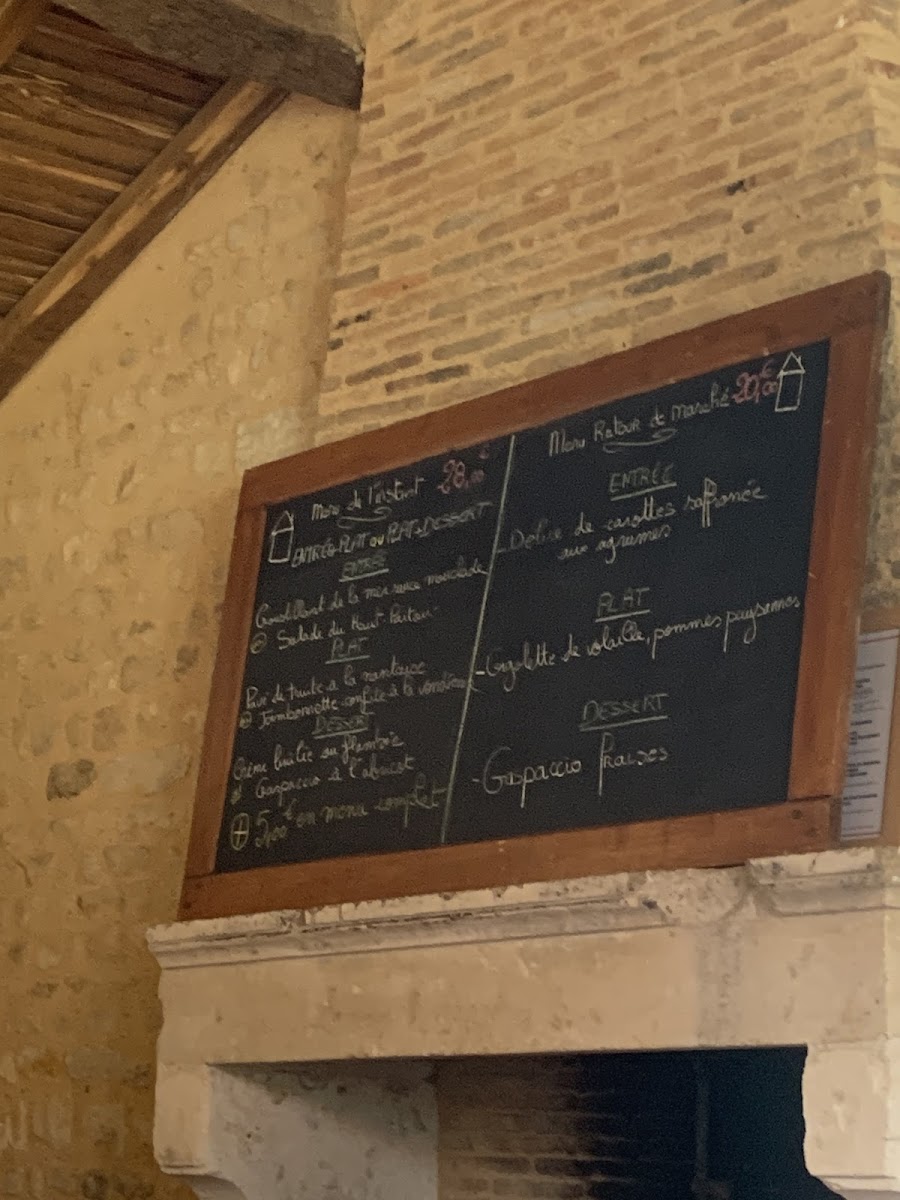 Menu de l'instant 28,00 €
ENTRÉE+PLAT ou PLAT+DESSERT
ENTRÉE
Croustillant de la mer sauce
ou Salade du Haut-Poitou
PLAT
Pavé de truite à la nantaise
ou Jambonnette confite à la
DESSERT
Crème brûlée ou flambée
ou Gaspaccio à l'abricot
+ 5,00 € en menu complet
Menu Retour de marché 20,00 €
ENTRÉE
- Délice de carottes saffronée
aux agrumes
PLAT
- Gigolette de volaille, pommes paysannes
DESSERT
- Gaspaccio fraises